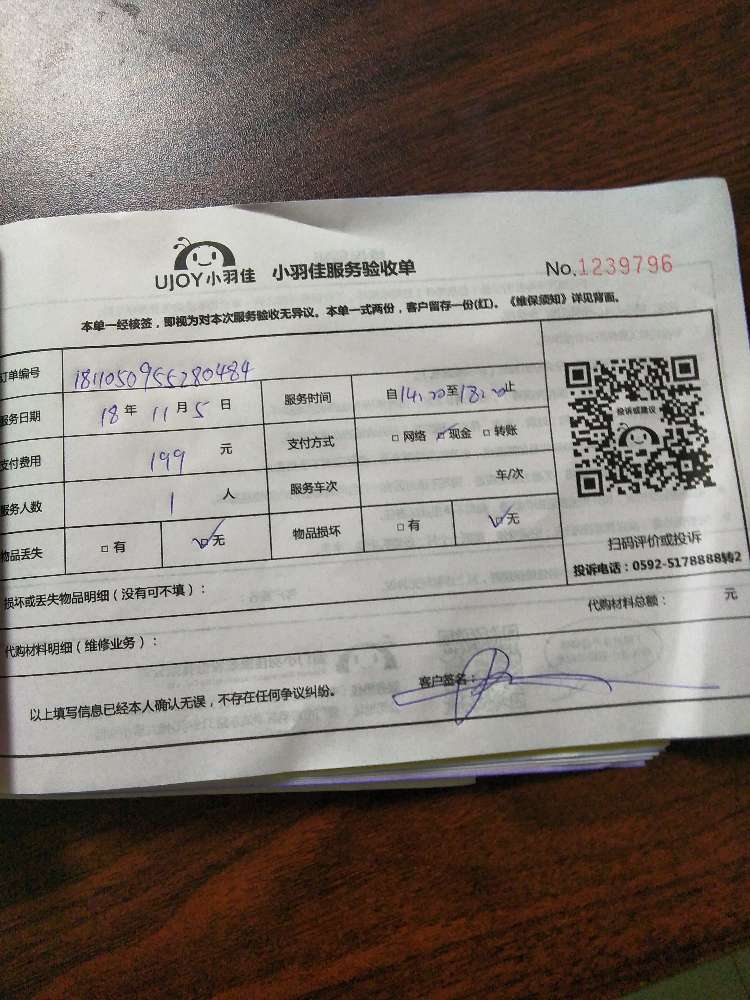 UJOY小羽佳 小羽佳服务验收单 No.1239796
本单一经核签，即视为对本次服务验收无异议。本单一式两份，客户留存一份(红)。《维保须知》详见背面。
订单编号 1811050955280484
服务日期 18年11月5日 服务时间 自14:20至18:20止
支付费用 199元 支付方式 □网络 ☑现金 □转账
服务人数 1人 服务车次 车/次
物品丢失 □有 ☑无 物品损坏 □有 ☑无
投诉或建议
扫码评价或投诉
投诉电话：0592-5178888转2
损坏或丢失物品明细（没有可不填）：
代购材料明细（维修业务）： 代购材料总额： 元
以上填写信息已经本人确认无误，不存在任何争议纠纷。 客户签名：